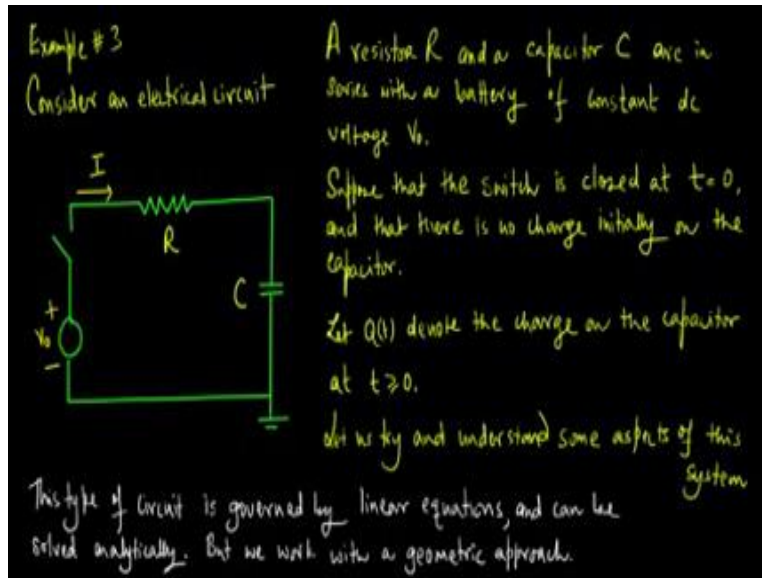 Example #3
Consider an electrical circuit
I
R
C
+
V₀
−
A resistor R and a capacitor C are in
series with a battery of constant dc
voltage V₀.
Suppose that the switch is closed at t=0,
and that there is no charge initially on the
capacitor.
Let Q(t) denote the charge on the capacitor
at t ⩾ 0.
Let us try and understand some aspects of this
system
This type of circuit is governed by linear equations, and can be
solved analytically. But we work with a geometric approach.